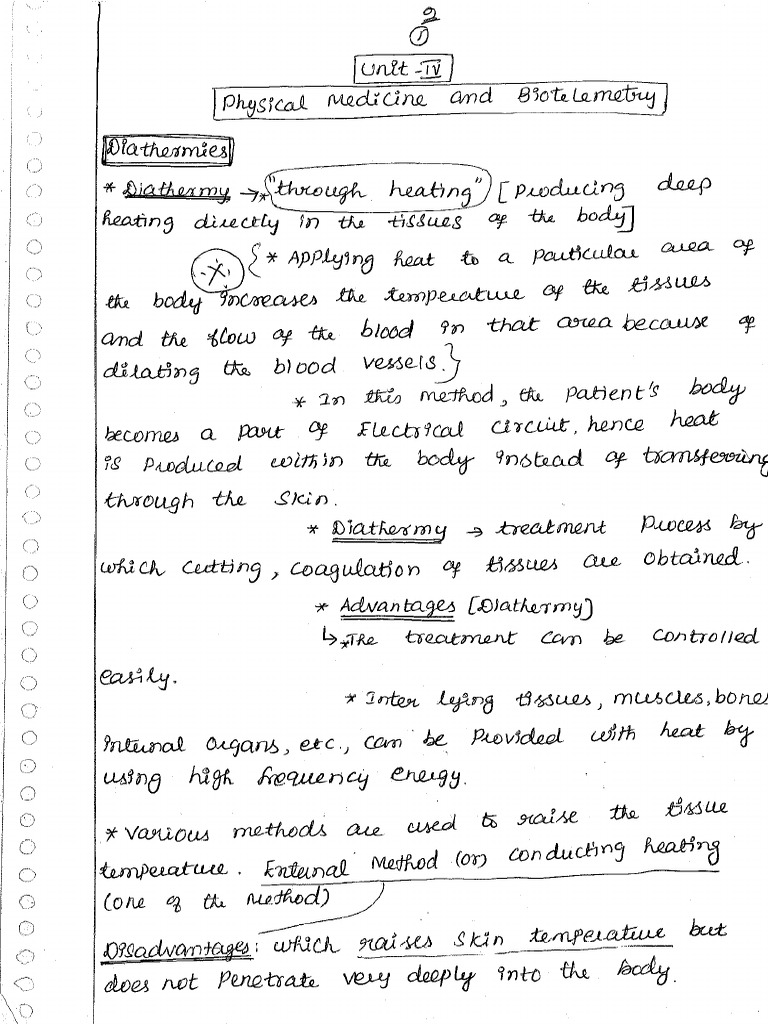 2
1
Unit - IV
Physical Medicine and Biotelemetry
Diathermies
* Diathermy →* "through heating" [producing deep
heating directly in the tissues of the body]
{* Applying heat to a particular area of
the body increases the temperature of the tissues
and the flow of the blood in that area because of
dilating the blood vessels.}
* In this method, the patient's body
becomes a part of Electrical circuit, hence heat
is produced within the body instead of transferring
through the skin.
* Diathermy → treatment process by
which cutting, coagulation of tissues are obtained.
* Advantages [Diathermy]
↳ * The treatment can be controlled
easily.
* Inter lying tissues, muscles, bones
internal organs, etc., can be provided with heat by
using high frequency energy.
* Various methods are used to raise the tissue
temperature. External Method (or) conducting heating
(one of the method)
Disadvantages: which raises skin temperature but
does not penetrate very deeply into the body.